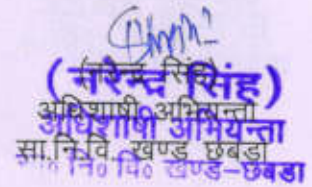 (नरेन्द्र सिंह)
(नरेन्द्र सिंह)
अधिशाषी अभियन्ता
अधिशाषी अभियन्ता
सा.नि.वि. खण्ड छबडा
नि० वि० खण्ड-छबडा